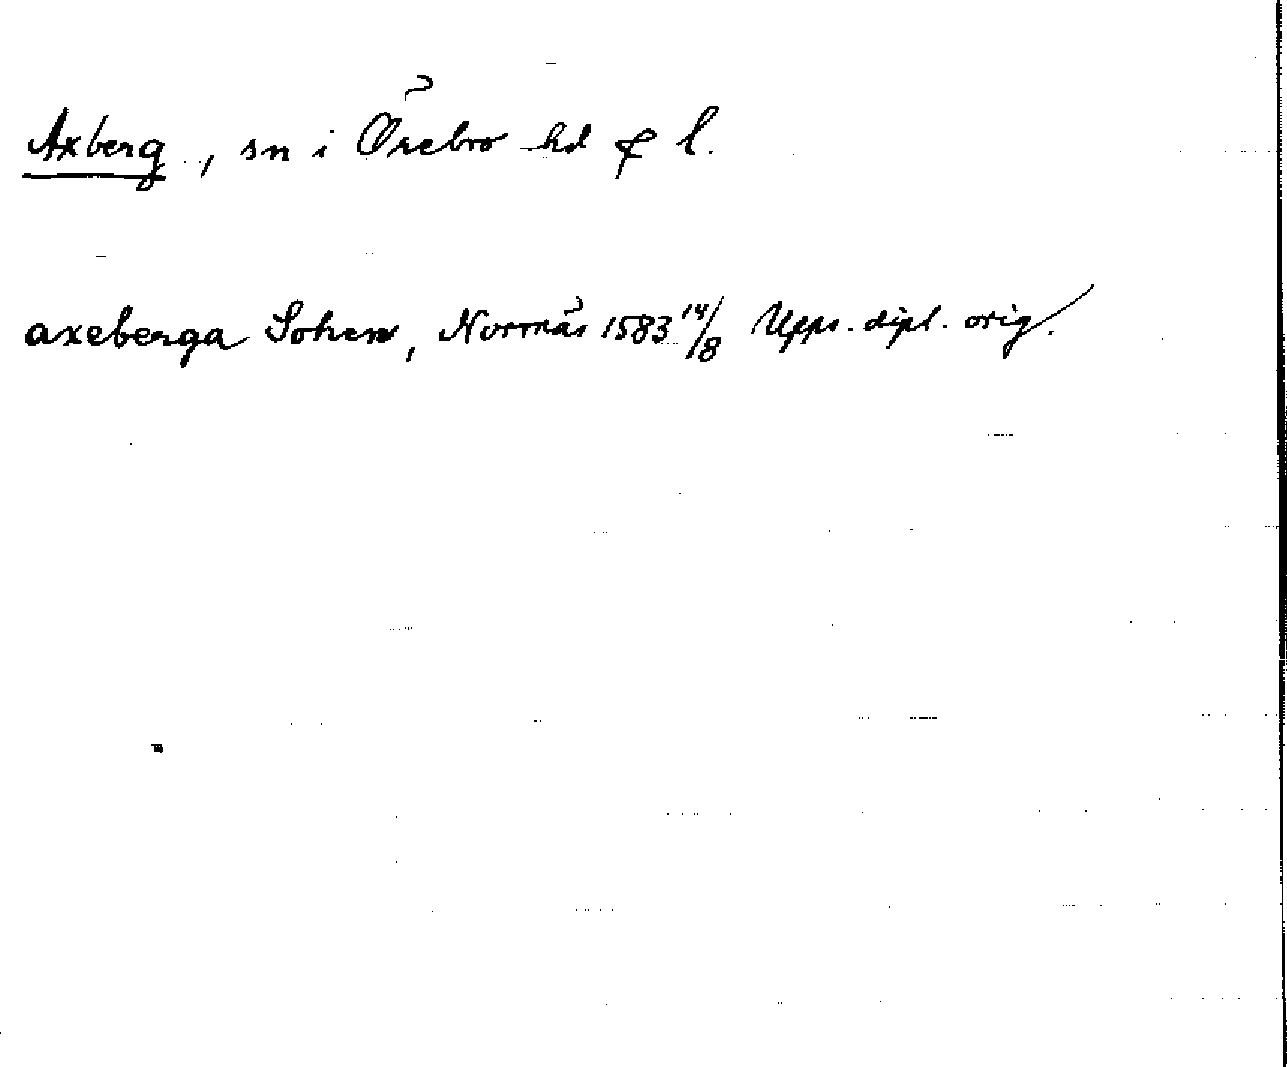 Axberg, sn i Örebro hd & l.
axeberga Sohen, Nornäs 1583 14/8 Upps. dipl. orig.